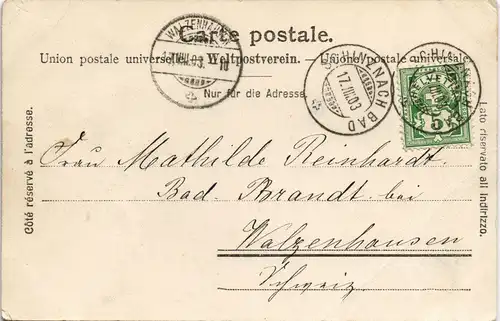 Carte postale.
Union postale universelle. — Weltpostverein. — Unione postale universale
Nur für die Adresse.
WALZENHAUSEN
17.VIII.03.
SCHINZNACH BAD
17.VIII.03
SCHINZNACH BAD
HELVETIA
5
Côté réservé à l'adresse.
Lato riservato all indirizzo.
Frau Mathilde Reinhardt
Bad-Brandt bei
Walzenhausen
Schweiz.